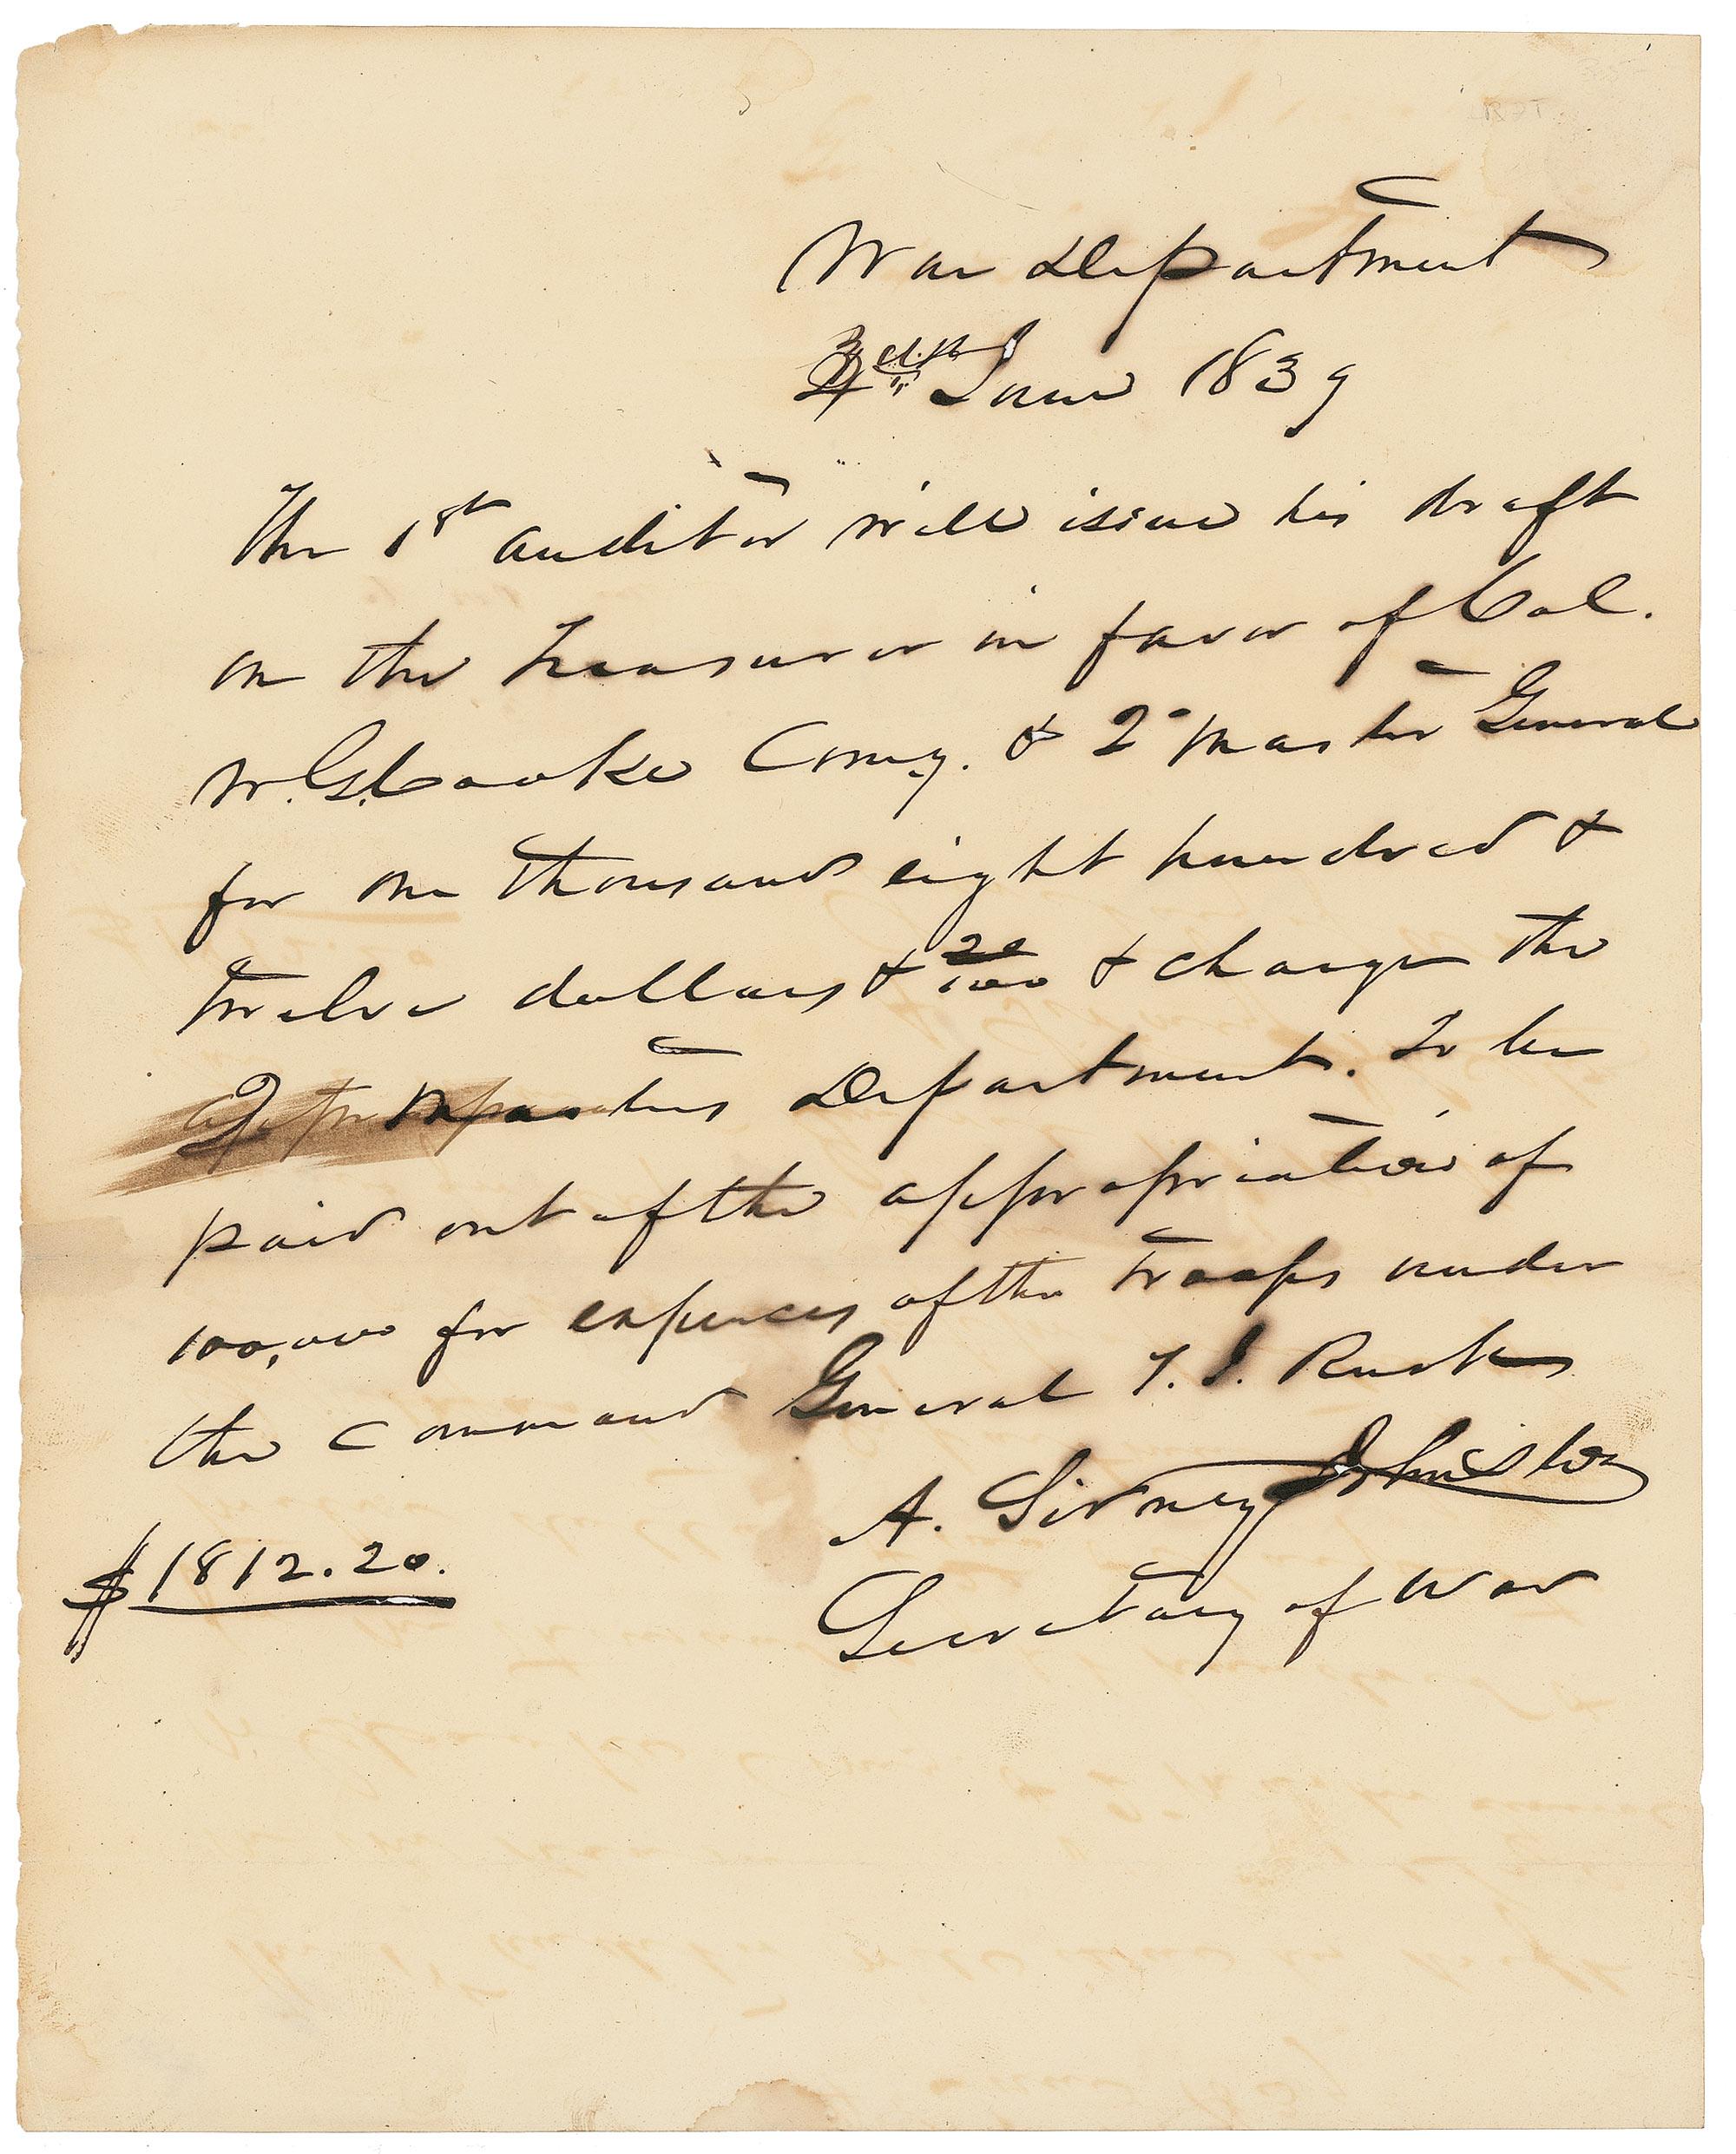 War Department
June 1839
The 1st auditor will issue his draft
on the Treasurer in favor of Col.
W. G. Cooke Comy. & Qr master General
for one thousand eight hundred &
twelve dollars & 20/100 & charge the
masters Department. To be
paid out of the appropriation of
100,000 for expences of the troops under
the command General T. J. Rusk
A. Sidney Johnston
Secretary of War
$1812.20.